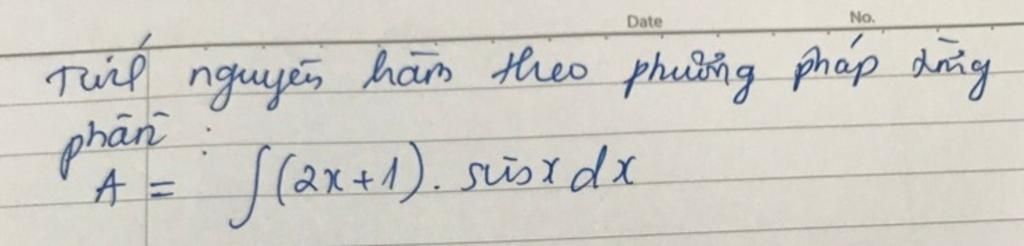 Date No.
Tính nguyên hàm theo phương pháp từng
phần :
A = ∫(2x+1). sinx dx